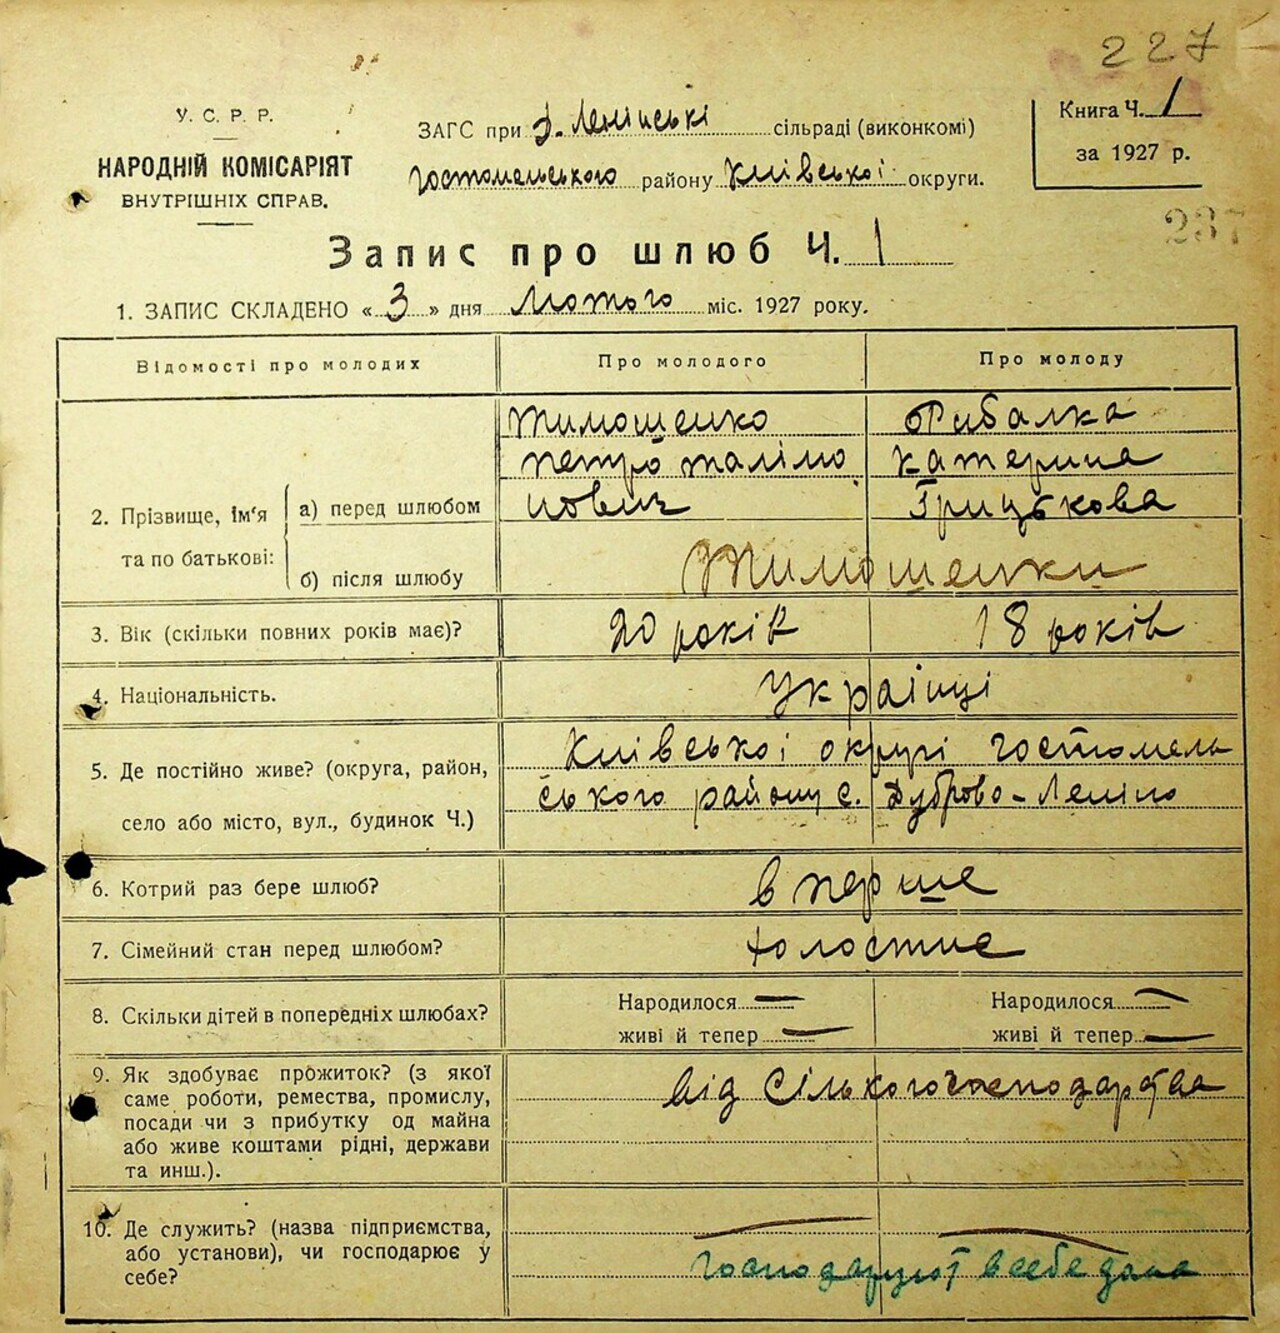 227
У. С. Р. Р.
НАРОДНІЙ КОМІСАРІЯТ
ВНУТРІШНІХ СПРАВ.
ЗАГС при Д. Ленінські сільраді (виконкомі)
Гостомельського району Київської округи.
Книга Ч. 1
за 1927 р.
237
Запис про шлюб Ч. 1
1. ЗАПИС СКЛАДЕНО «3» дня Лютого міс. 1927 року.
Відомості про молодих
Про молодого
Про молоду
2. Прізвище, ім'я та по батькові:
а) перед шлюбом
Тимошенко
Петро
нович
Рибалка
Катерина
Грицькова
б) після шлюбу
Тимошенки
3. Вік (скільки повних років має)?
20 років
18 років
4. Національність.
Українці
5. Де постійно живе? (округа, район,
село або місто, вул., будинок Ч.)
Київської округі Гостомель
ського району с. Дуброво-Леніно
6. Котрий раз бере шлюб?
в перше
7. Сімейний стан перед шлюбом?
холостие
8. Скільки дітей в попередніх шлюбах?
Народилося —
живі й тепер —
Народилося —
живі й тепер —
9. Як здобуває прожиток? (з якої
саме роботи, ремества, промислу,
посади чи з прибутку од майна
або живе коштами рідні, держави
та инш.).
від Сількогогосподарства
10. Де служить? (назва підприємства,
або установи), чи господарює у
себе?
— —
господарюют в себе дома